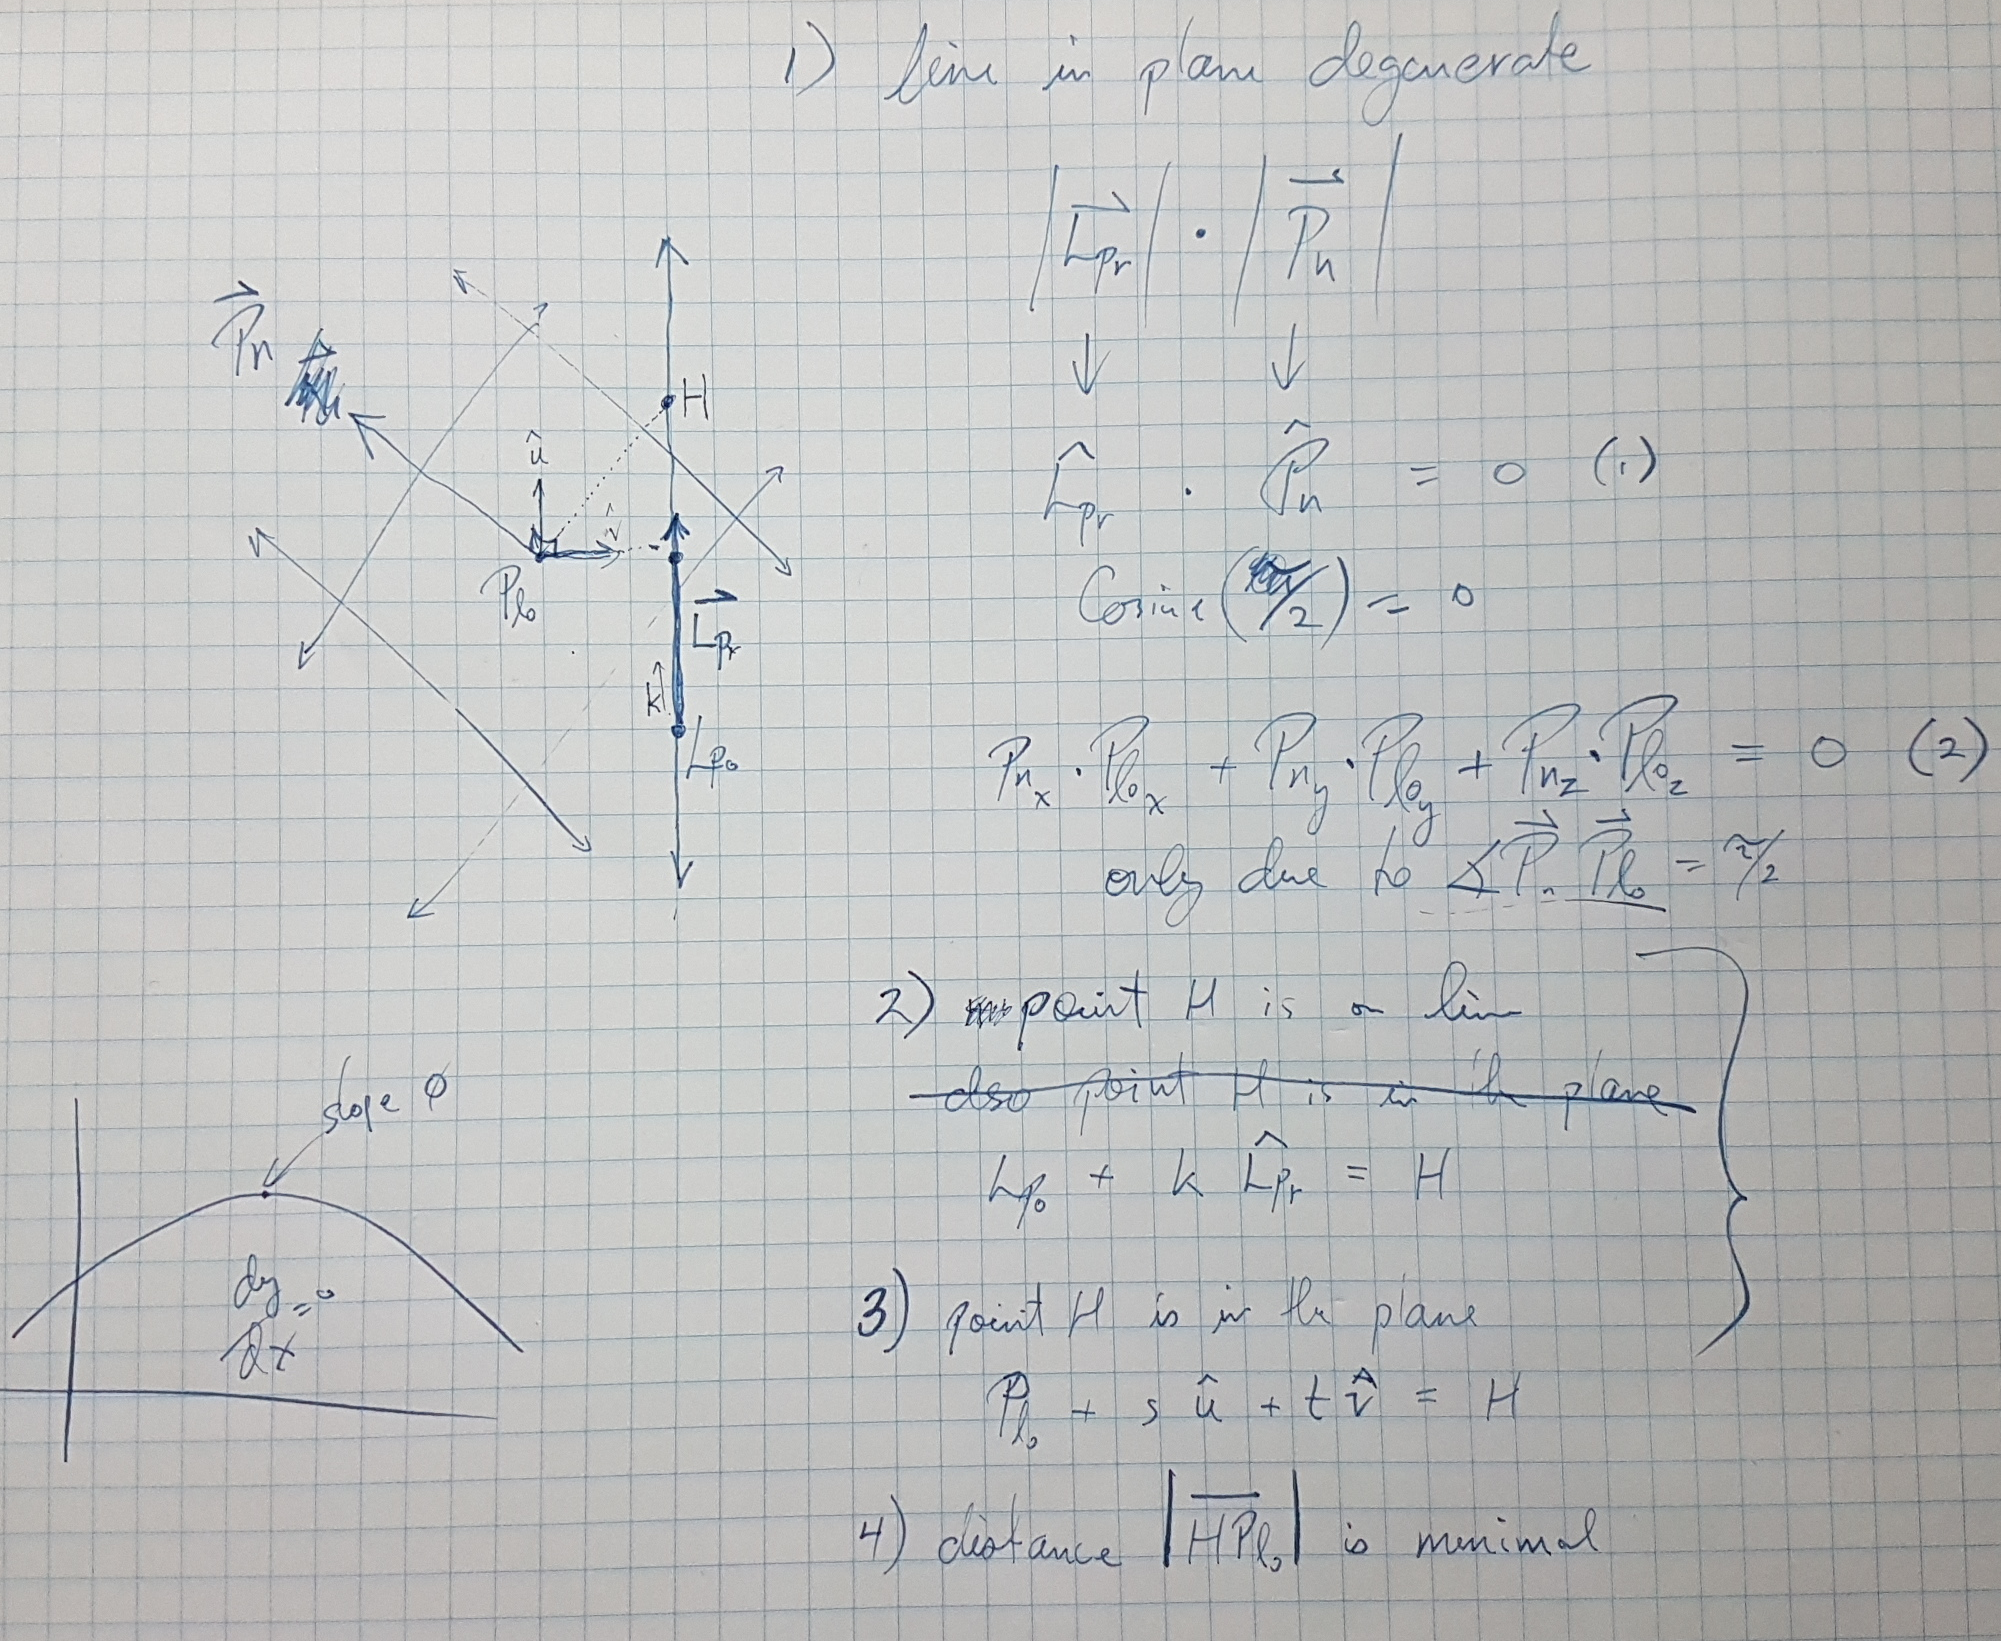 1) line in plane degenerate
|L⃗pr| · |P⃗n|
↓ ↓
L̂pr · P̂n = 0 (1)
Cosine(π/2) = 0
Pnx · Pl₀x + Pny · Pl₀y + Pnz · Pl₀z = 0 (2)
only due to ∡ P⃗n P⃗l₀ = π/2
2) point H is on line
also point H is in the plane
Lp₀ + k L̂pr = H
3) point H is in the plane
Pl₀ + s û + t v̂ = H
4) distance |HPl₀| is minimal
P⃗n
H
û
v̂
Pl₀
L⃗pr
k
Lp₀
slope 0
dy/dx = 0